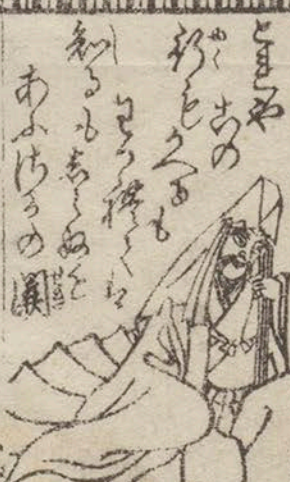 これや
この
行もかへるも
わかれては
知るもしらぬも
あふさかの關